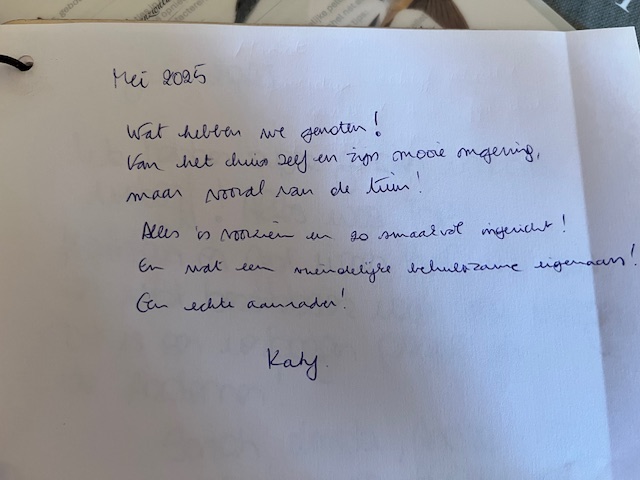 Mei 2025
Wat hebben we genoten!
Van het huis zelf en zijn mooie omgeving,
maar vooral van de tuin!
Alles is voorzien en zo smaakvol ingericht!
En wat een vriendelijke behulpzame eigenaars!
Een echte aanrader!
Katy